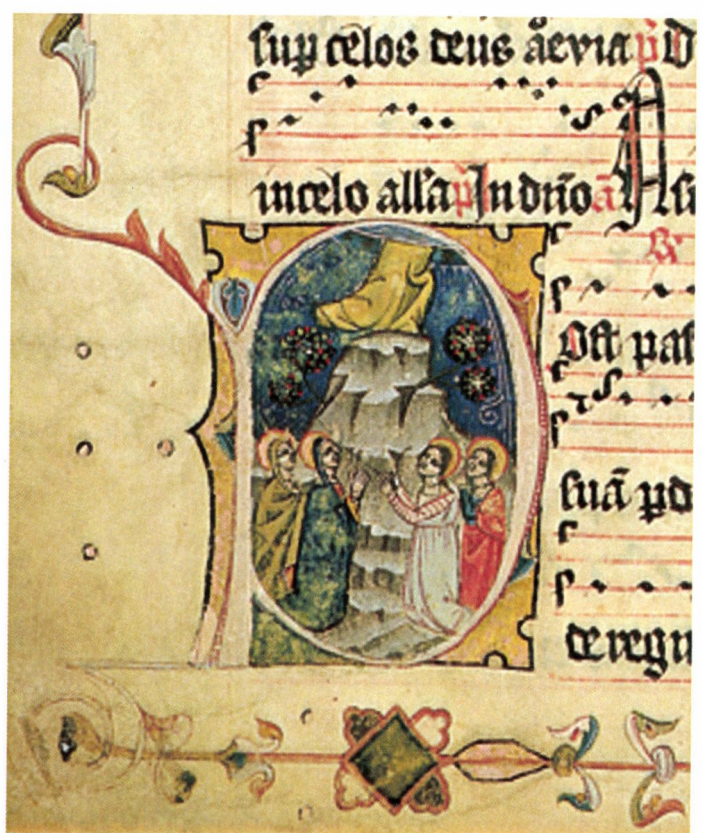 sup celos deus aevia p̄ D
in celo all'a p̄ In dn̄o ā Asc
℟
Ost pas
suā pd
de regn